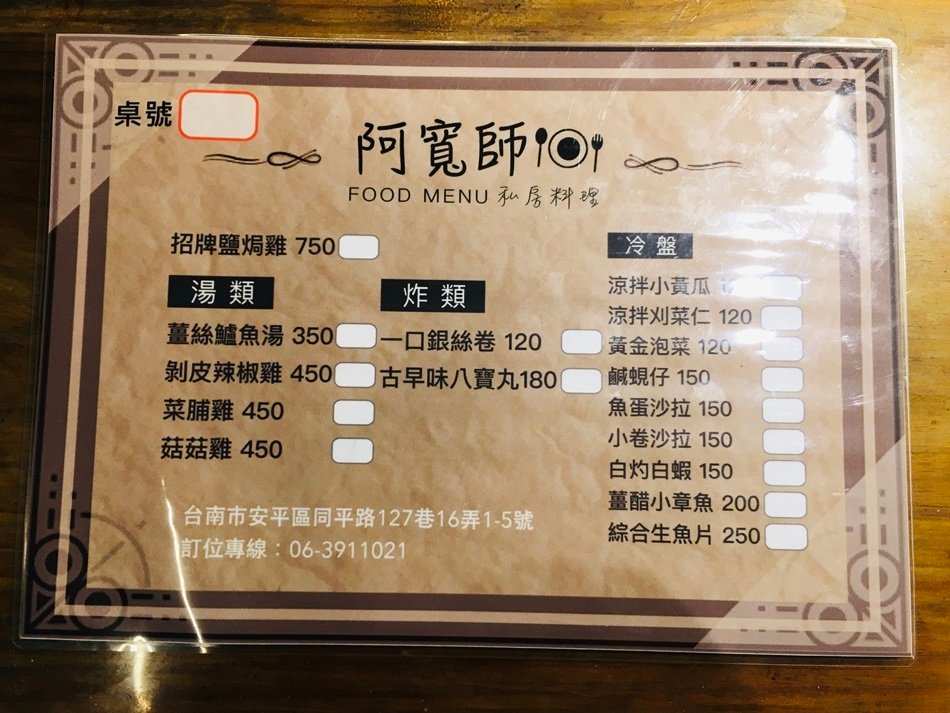 桌號
阿寬師
FOOD MENU 私房料理
招牌鹽焗雞 750
湯類
薑絲鱸魚湯 350
剝皮辣椒雞 450
菜脯雞 450
菇菇雞 450
炸類
一口銀絲卷 120
古早味八寶丸180
冷盤
涼拌小黃瓜
涼拌刈菜仁 120
黃金泡菜 120
鹹蜆仔 150
魚蛋沙拉 150
小卷沙拉 150
白灼白蝦 150
薑醋小章魚 200
綜合生魚片 250
台南市安平區同平路127巷16弄1-5號
訂位專線：06-3911021